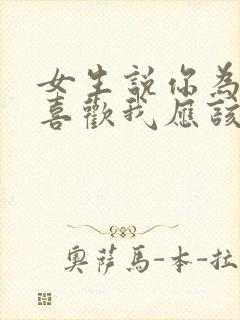 女生說你為
喜歡我應該
奧薩馬-本-拉